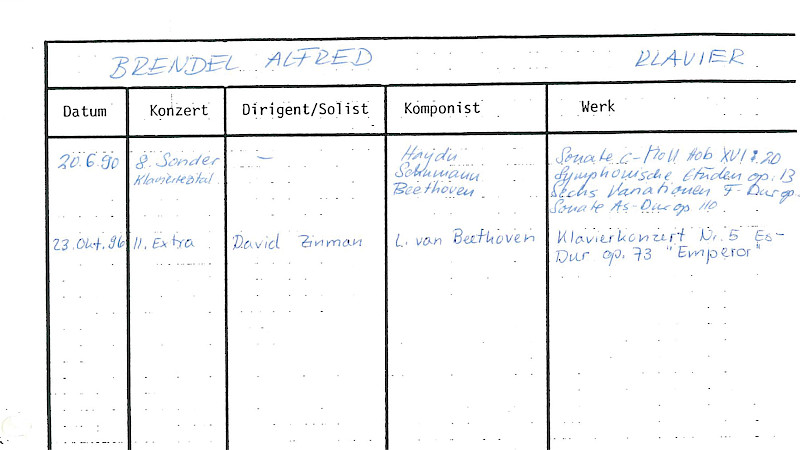 BRENDEL ALFRED KLAVIER
Datum Konzert Dirigent/Solist Komponist Werk
20.6.90 8. Sonder — Haydn Sonate c-Moll Hob XVI:20
Klavierrezital Schumann Symphonische Etüden op. 13
Beethoven Sechs Variationen F-Dur op.
Sonate As-Dur op 110
23.Okt.96 11. Extra David Zinman L. van Beethoven Klavierkonzert Nr. 5 Es-
Dur op. 73 "Emperor"